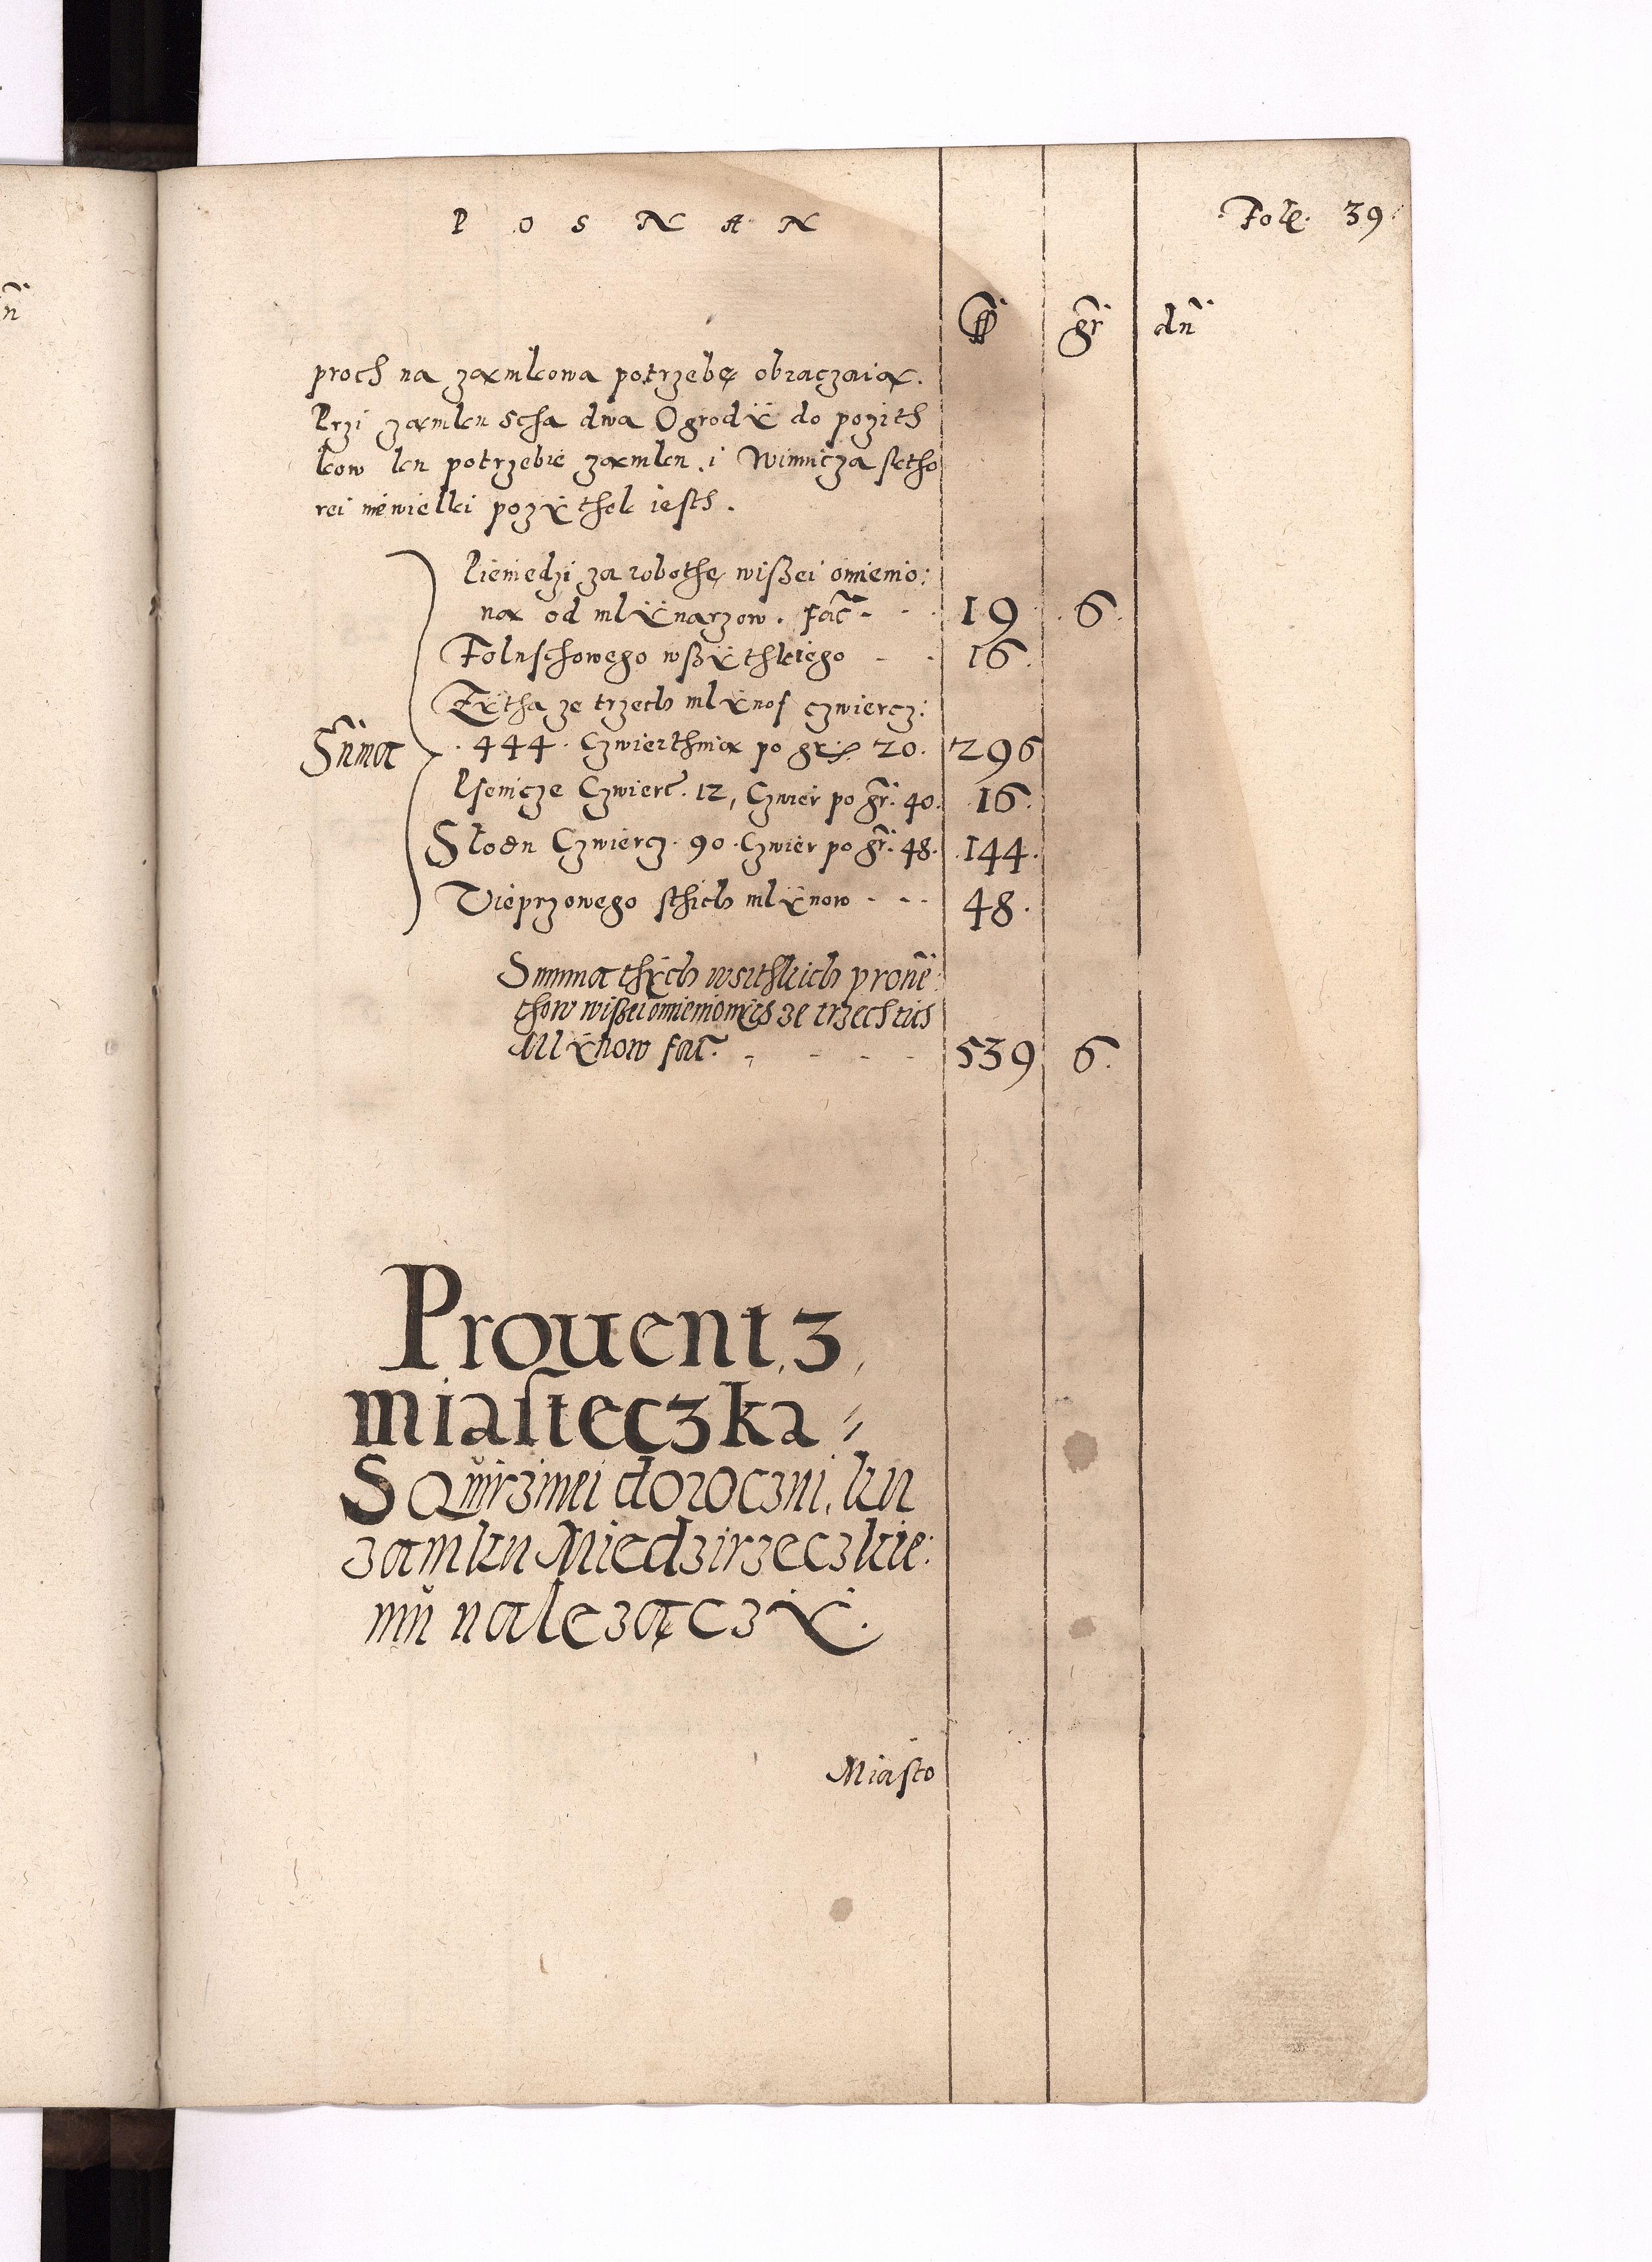 P O S N A N
Fole. 39
ff gr̃ dñ
proch na zamkowa potrzebę obraczaią.
Przi zamku Scha dwa Ogrodÿ do pozith
kow ku potrzebie zamku. i Winnicza sktho
rei niewielki pozÿthek iesth.
Pieniedzi za robothę wißei omienio:
ną od mlÿnarzow. Fac̃ 19 6.
Foluschowego wßÿthkiego 16.
Zÿtha ze trzech mlÿnof czwiercz:
Sum̃a .444. Czwierthnią po gr 20. 296
Psenicze Czwierc. 12, Czwier po gr̃. 40. 16.
Słodu Czwiercz. 90. Czwier po gr̃. 48. .144.
Vieprzowego sthich mlÿnow 48.
Summa thÿch wsithkich prouẽ
thow wißei omienionÿch ze trzech tich
Mlÿnow fac̃. 539 6.
Prouent, z,
miasteczka
SQwirzinei doroczni, ku
zamku Miedzirzeczkie:
mu nalezączÿ.
Miasto